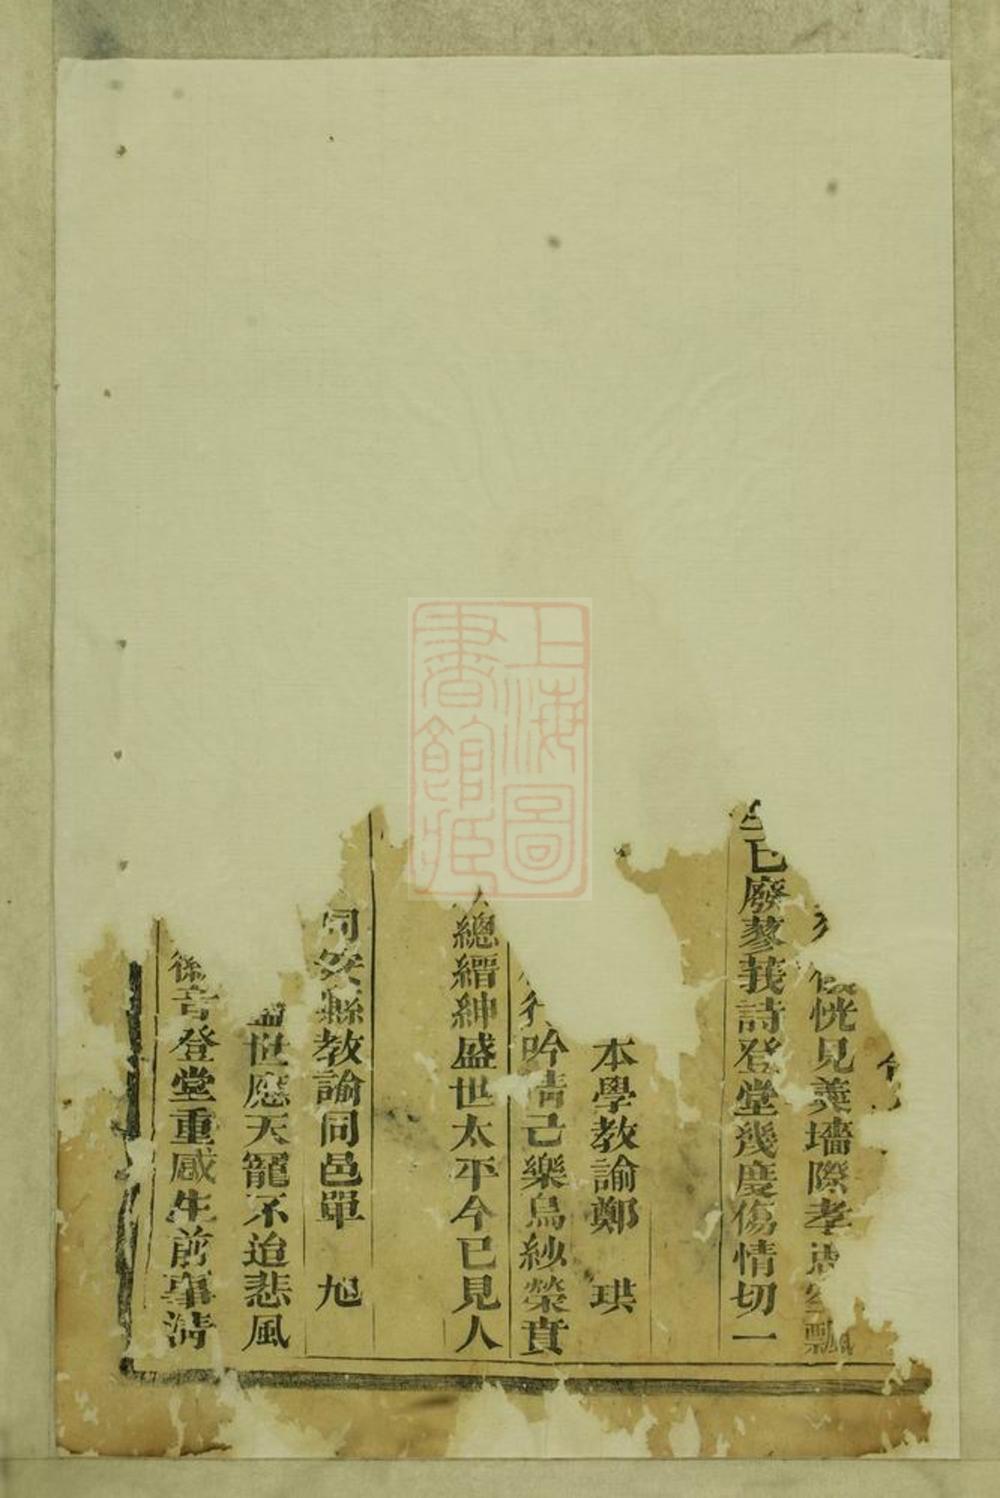 恍見羹墻際孝
飄
已廢蓼莪詩登堂幾度傷情切一
本學教諭鄭　珙
吟情已樂烏紗榮責
總縉紳盛世太平今已見人
同安縣教諭同邑單　旭
世應天寵不迨悲風
音登堂重感生前事淸
上海圖書館藏